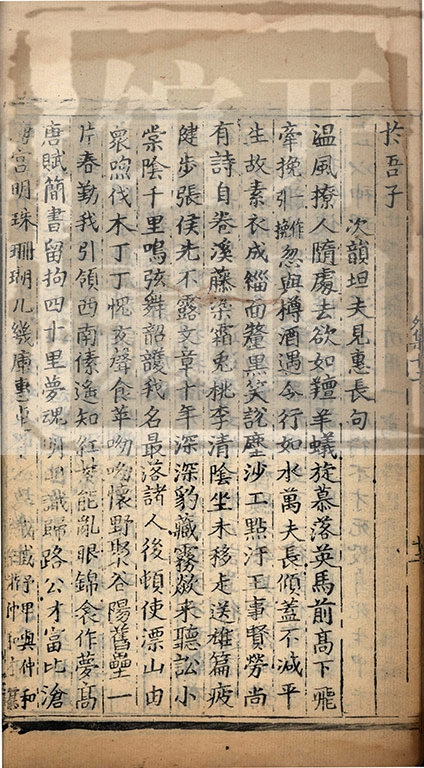 於吾子
次韻坦夫見惠長句
温風撩人隨處去欲如羶羊蟻旋慕落英馬前高下飛
牽挽引作擁忽與樽酒遇今行如水萬夫長傾蓋不減平
生故素衣成緇面黧黑笑說塵沙工點汙王事賢勞尚
有詩自卷溪藤染霜兔桃李清陰坐未移走送雄篇疲
健步張侯先不露文章十年深深豹藏霧欻來聽訟小
棠陰千里鳴弦舞韶頀我名最落諸人後頓使漂山由
衆喣伐木丁丁愧友聲食苹呦呦懷野聚谷陽舊壘一
片春勤我引領西南傃遙知紅葵能亂眼錦衾作夢高
唐賦簡書留拘四十里夢魂明識歸路公才富比滄
宮明珠珊瑚几幾庫